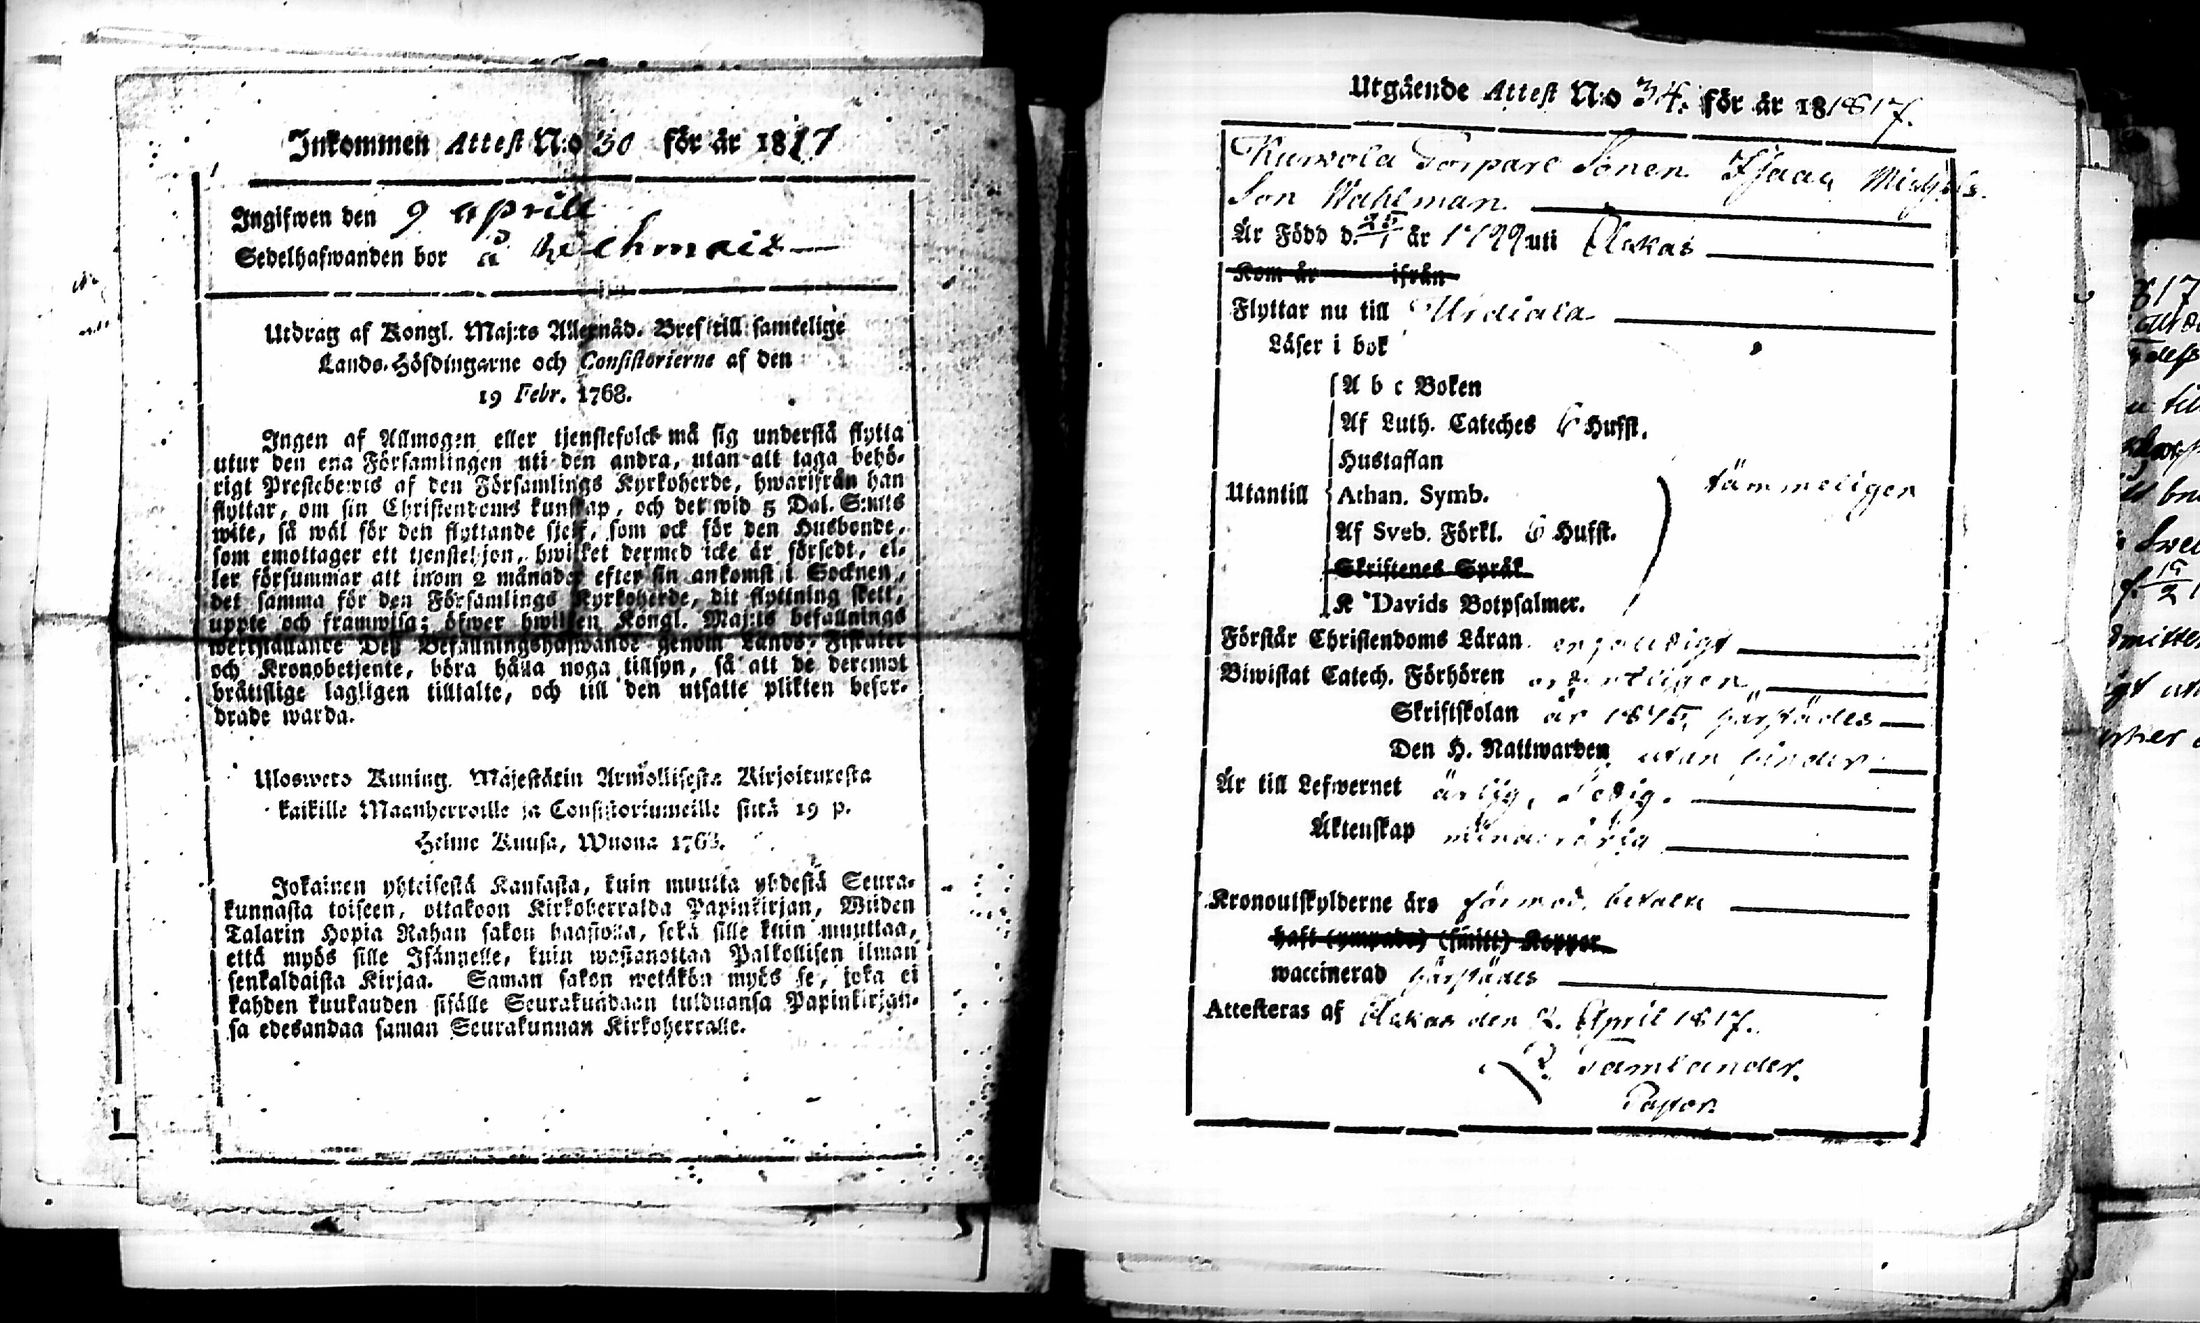 Inkommen Attest N:o 30 för år 1817
Ingifwen den 9 aprill
Sedelhafwanden bor å Wehmais
Utdrag af Kongl. Maj:ts Allernåd. Bref till samtelige
Lands-Höfdingarne och Consistorierne af den
19 Febr. 1768.
Ingen af Allmogen eller tjenstefolck må sig understå flytta
utur den ena Församlingen uti den andra, utan att taga behö-
rigt Prestebewis af den Församlings Kyrkoherde, hwarifrån han
flyttar, om sin Christendoms kunskap, och det wid 5 Dal. S:mts
wite, så wäl för den flyttande sjelf, som ock för den Husbonde,
som emottager ett tjenstehjon, hwilket dermed icke är försedt, el-
ler försummar att inom 2 månader efter sin ankomst i Socknen,
det samma för den Församlings Kyrkoherde, dit flyttning skett,
uppte och framwisa; öfwer hwilken Kongl. Maj:ts befallnings
werkställande Dess Befallningshafwande genom Lands-Fiskaler
och Kronobetjente, böra hålla noga tillsyn, så att de deremot
bråttslige lagligen tilltalte, och till den utsatte plikten befor-
drade warda.
Ulosweto Kuning. Majestätin Armollisesta Kirjoituxesta
kaikille Maanherroille ja Consistoriumeille siitä 19 p.
Helme Kuusa, Wuona 1768.
Jokainen yhteisestä Kansasta, kuin muutta yhdestä Seura-
kunnasta toiseen, ottakoon Kirkoherralda Papinkirjan, Wiiden
Talarin Hopia Rahan sakon haastolla, sekä sille kuin muuttaa,
että myös sille Isännelle, kuin wastanottaa Palkollisen ilman
senkaldaista Kirjaa. Saman sakon wetäkön myös se, joka ei
kahden kuukauden sisälle Seurakundaan tulduansa Papinkirjan-
sa edesandaa saman Seurakunnan Kirkoherralle.
Utgående Attest N:o 34. för år 181817.
Torpare Sonen Isaac Michels
Son Wahlman
Är Född d. 25/1 år 1799 uti Ackas
Kom år ifrån
Flyttar nu till Urdiala
Läser i bok
A b c Boken
Af Luth. Cateches 6 Hufst.
Hustaflan
Utantill Athan. Symb. tämmeligen
Af Sveb. Förkl. 6 Hufst.
Skriftenes Språk
K Davids Botpsalmer.
Förstår Christendoms Läran enfaldigt
Biwistat Catech. Förhören ordentligen
Skriftskolan år 1815, härstädes
Den H. Nattwarden utan hinder
Är till Lefwernet ärlig, ledig.
Äktenskap minderårig
Kronoutskylderne äro förmod. betalte
haft (ympade) (smitt) Koppor
waccinerad härstädes
Attesteras af Ackas den 2. April 1817.
Tamlander.
Pastor